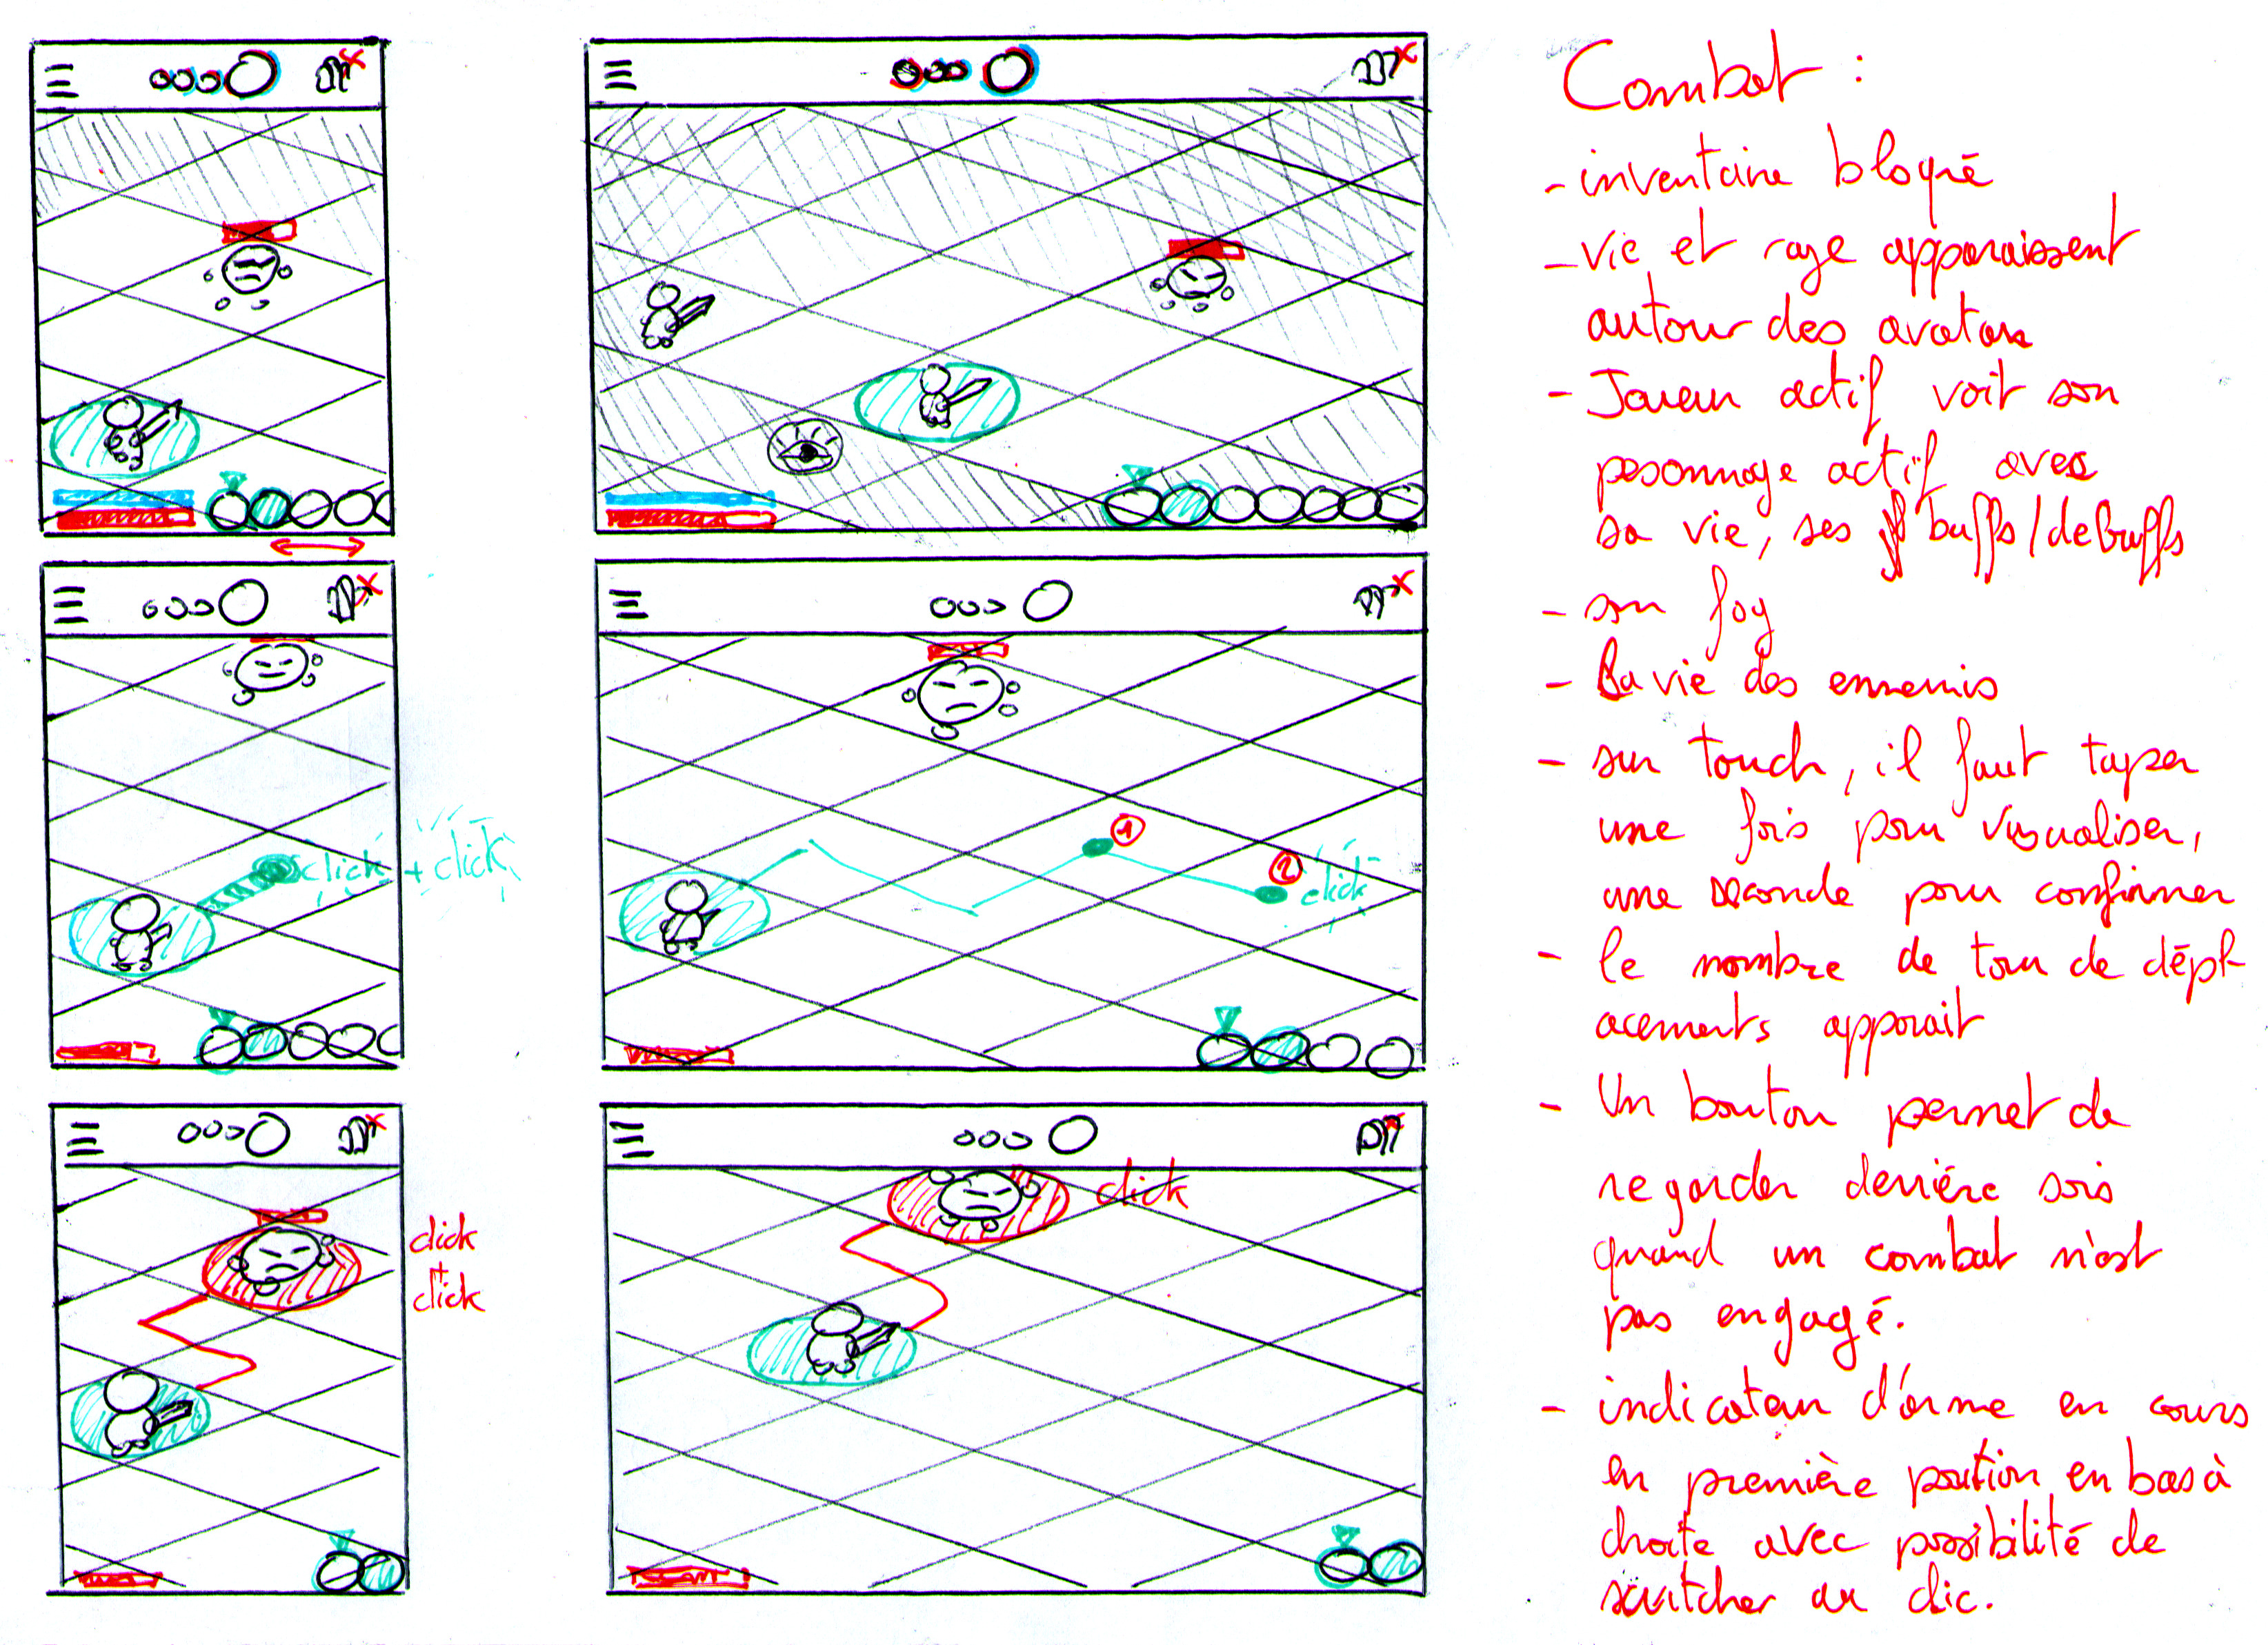 Combat :
- inventaire bloqué
- vie et rage apparaissent
autour des avatars
- Joueur actif voit son
pesonnage actif avec
sa vie, ses buffs/debuffs
- son fog
- La vie des ennemis
- sur touch, il faut taper
une fois pour visualiser,
une seconde pour confirmer
- le nombre de tour de dépl-
acements apparait
- Un bouton permet de
regarder derrière sois
quand un combat n'est
pas engagé.
- indicateur d'arme en cours
en première position en bas à
droite avec possibilité de
switcher au clic.
click + click
1
2
click
click
+
click
click